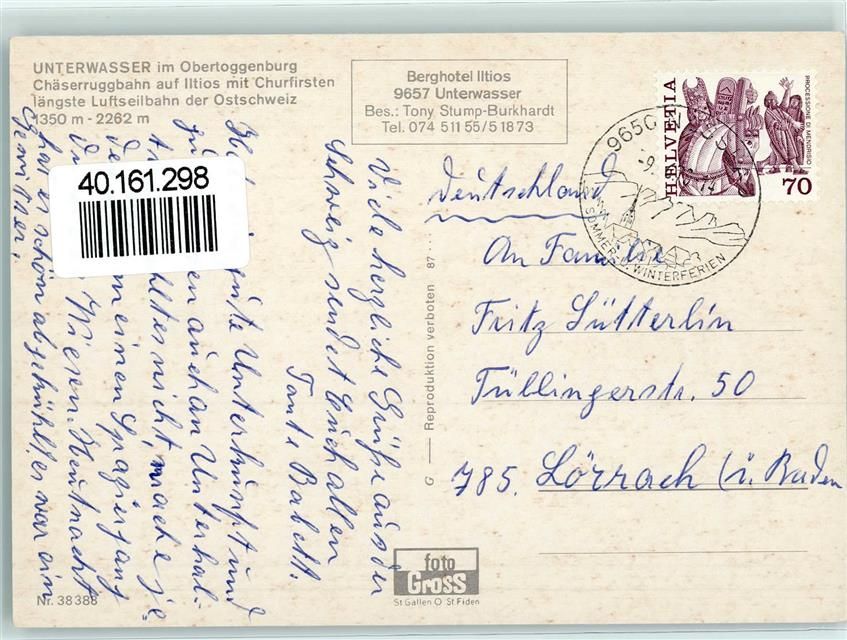 UNTERWASSER im Obertoggenburg
Chäserruggbahn auf Iltios mit Churfirsten
längste Luftseilbahn der Ostschweiz
1350 m - 2262 m
Berghotel Iltios
9657 Unterwasser
Bes.: Tony Stump-Burkhardt
Tel. 074 511 55/5 18 73
HELVETIA
PROCESSIONE DI MENDRISIO
70
9650
SOMMER- U. WINTERFERIEN
40.161.298
Deutschland
An Familie
Fritz Sütterlin
Tüllingerstr. 50
785. Lörrach (i. Baden
Viele herzliche Grüße aus der
Schweiz sendet Euch allen
Tante Babett.
gute Unterkunft und
auch an Unterhal-
nicht, mache je
meinen Spaziergang
Wiesen. Heut nacht
hat es schön abgekühlt, es war ein
Gewitter,
G — Reproduktion verboten 87 ...
foto
Gross
St Gallen O St Fiden
Nr. 38388